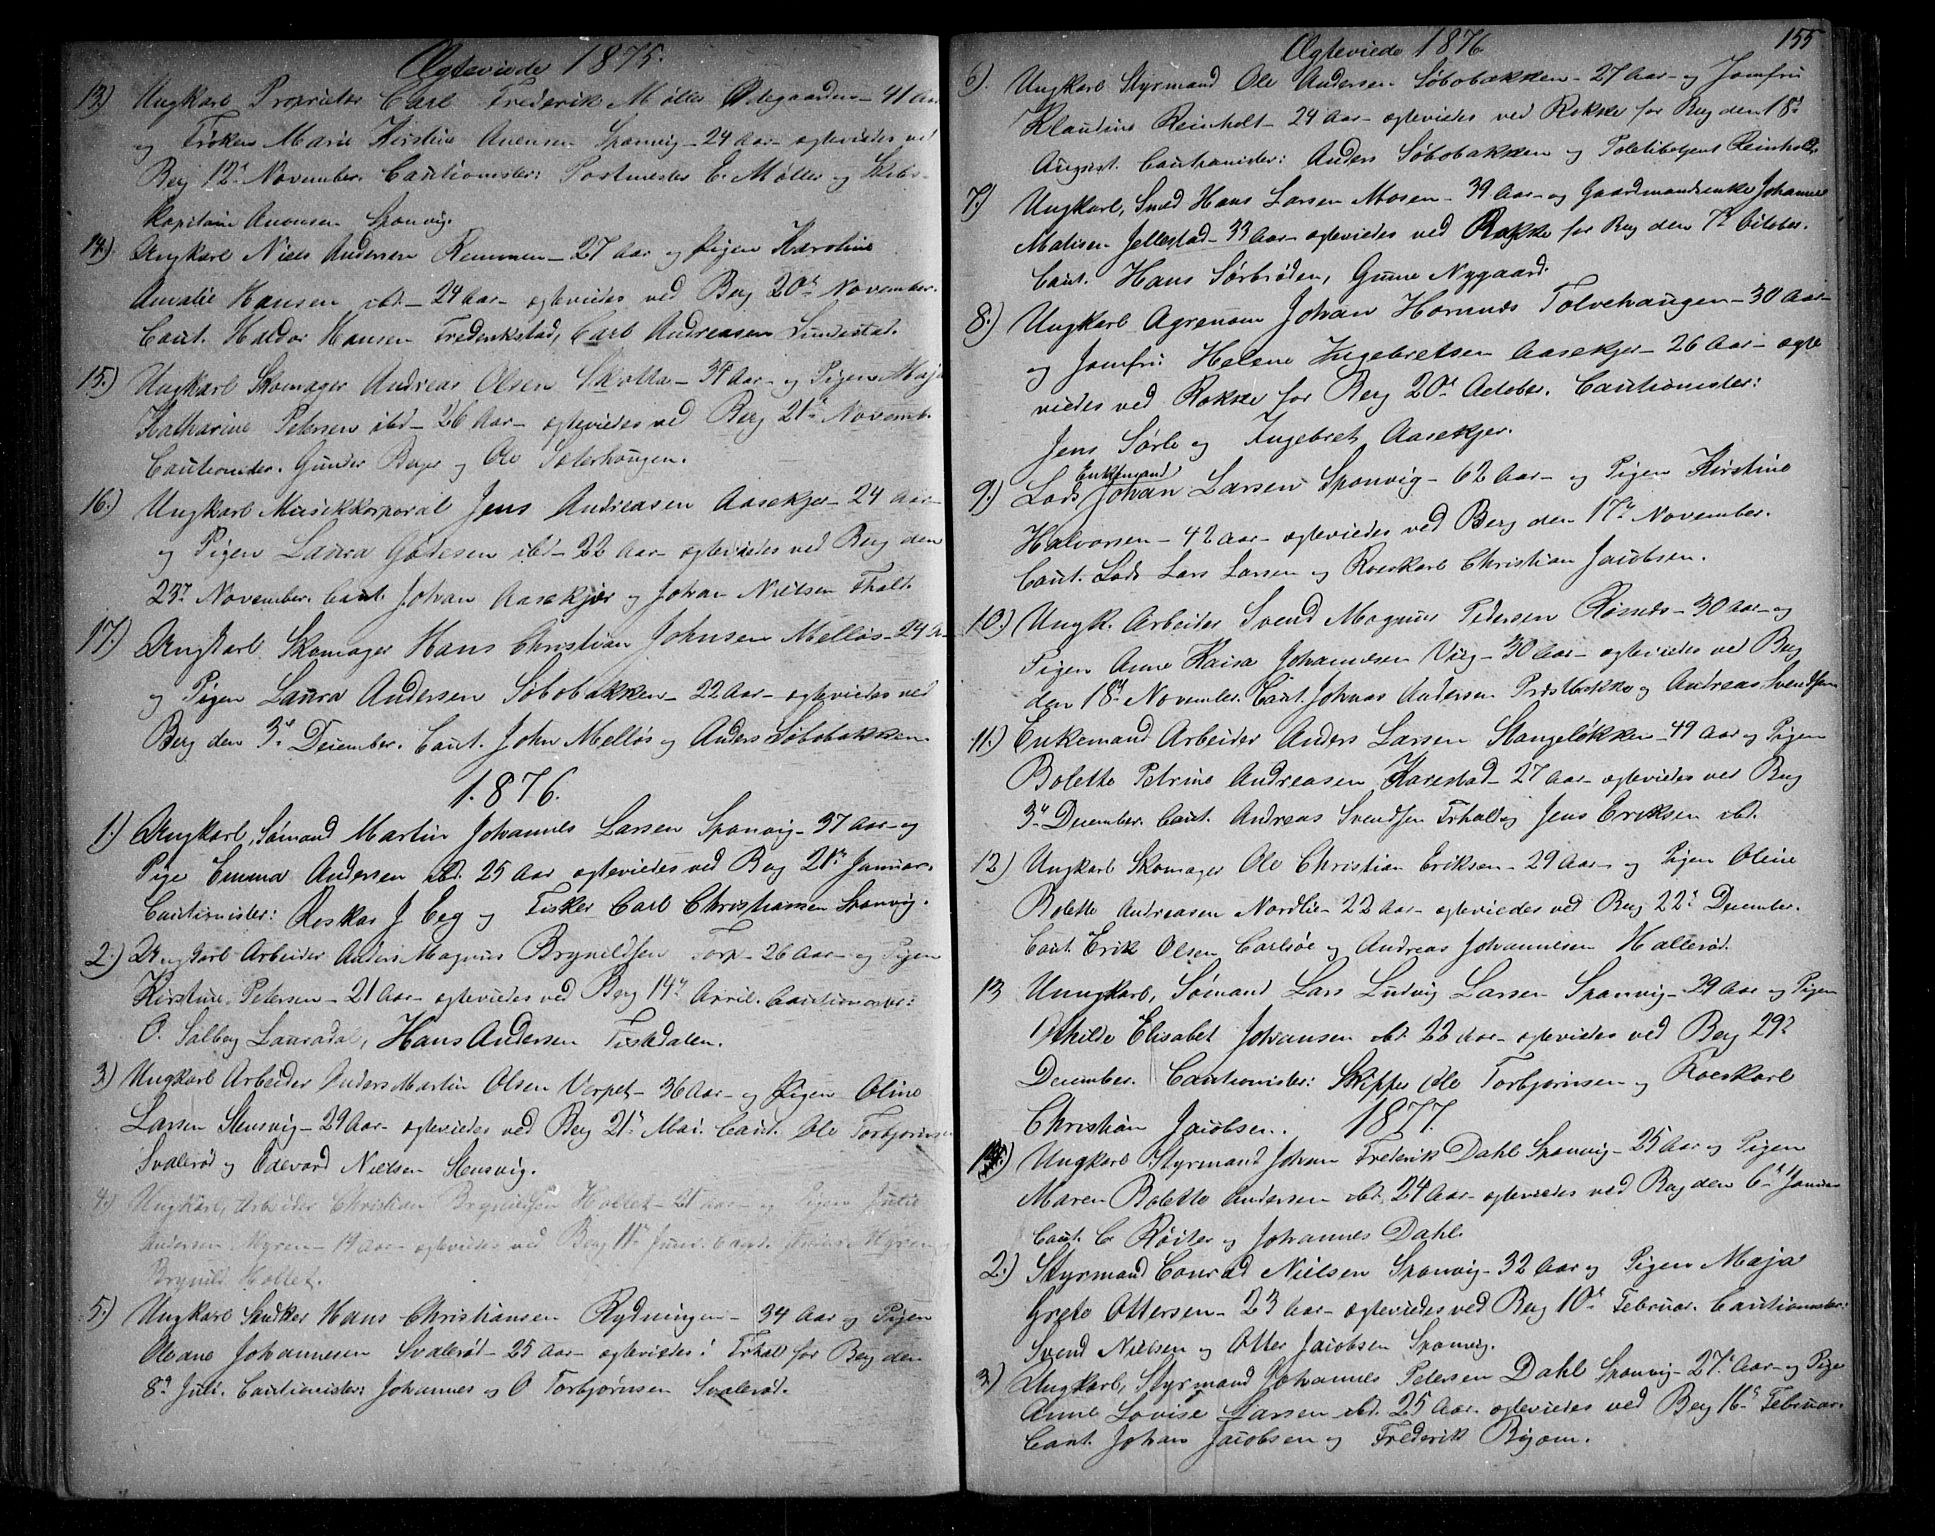 Ægteviede 1875.
13.) Ungkarl Proprietær Carl Frederik Møller Ødegaarden - 41 Aar
og Frøken Marie Kirstine Anensen Sponvig - 24 Aar - ægteviedes ved
Berg 12te November. Cautionister: Postmester C. Møller og Skibs-
kapitain Anensen Sponvig.
14.) Ungkarl Niels Andersen Remmen - 27 Aar og Pigen Karoline
Amalie Hansen ibd. - 24 Aar - ægteviedes ved Berg 20de November.
Caut. Haldor Hansen Frederikstad, Carl Andreasen Sundestad.
15.) Ungkarl Skomager Andreas Olsen Skolla - 34 Aar - og Pigen Maja
Katharine Petersen ibd - 26 Aar - ægteviedes ved Berg 21de Novemb.
Cautionister. Gunder Berger og Ole Sæterhougen.
16.) Ungkarl Musikkorporal Jens Andreasen Aasekjer - 24 Aar -
og Pigen Laura Godesen ibd - 22 Aar - ægteviedes ved Berg den
23de November. Caut. Johan Aasekjer og Johan Nielsen Thalt.
17.) Ungkarl Skomager Hans Christian Johnsen Melløs - 24 A-
og Pigen Laura Andersen Søbobakken - 22 Aar - ægteviedes ved
Berg den 3de December. Caut. John Melløs og Anders Søbobakken.
1876.
1.) Ungkarl, Sømand Martin Johannes Larsen Sponvig - 37 Aar - og
Pige Emma Andersen ibd. 25 Aar ægteviedes ved Berg 21de Januar.
Cautionister: Roskar J. Eeg og Fisker Carl Christiansen Sponvig.
2.) Ungkarl Arbeider Anders Magnus Brynildsen Torp - 26 Aar - og Pigen
Kirstine Petersen - 21 Aar - ægteviedes ved Berg 14de April. Cautionister:
O. Solberg Lauradal, Hans Andersen Fiskdalen.
3) Ungkarl Arbeider Anders Martin Olsen Vorpet - 36 Aar - og Pigen Oline
Larsen Stensvig - 29 Aar - ægteviedes ved Berg 21de Mai. Caut. Ole Torbjørnsen
Svalerød og Edevard Nielsen Stensvig.
4) Ungkarl, Arbeider Christian Brynildsen Hollet - 21 Aar - og Pigen Julie
Andersen Myren - 19 Aar - ægteviedes ved Berg 11te Juni. Caut. Myren
Brynild Hollet.
5.) Ungkarl Snedker Hans Christiansen Rydningen - 34 Aar og Pigen
Oleane Johannesen Svalerød - 25 Aar - ægteviedes i Irhal for Berg den
8de Juli. Cautionister: Johannes og O Torbjørnsen Svalerød.
Ægteviede 1876
155
6). Ungkarl Styrmand Ole Andersen Søbobakken - 27 Aar - og Jomfru
Klaudine Reinholt - 24 Aar - ægteviedes ved Rokke for Berg den 18d
August. Cautionister: Anders Søbobakken og Politibetjent Reinholt.
7.) Ungkarl, Smed Hans Larsen Mosen - 39 Aar - og Gaardmandsenke Johanne
Matisen Jellestad - 33 Aar - ægteviedes ved Rokke for Berg den 7de October.
Caut. Hans Sørbrøden, Gune Nygaard.
8.) Ungkarl Agronom Johan Hornnes Tolvehaugen - 30 Aar -
og Jomfru Helene Ingebretsen Aasekjer - 26 Aar - ægte
viedes ved Rokke for Berg 20de October. Cautionister:
Jens Sørle og Ingebret Aasekjer.
9.) Lods Enkemand Johan Larsen Sponvig - 62 Aar - og Pigen Kirstine
Halvorsen - 42 Aar - ægteviedes ved Berg den 17de November.
Caut. Lods Lars Larsen og Roeskarl Christian Jacobsen.
10.) Ungk. Arbeider Svend Magnus Pedersen Røsnes - 30 Aar - og
Pigen Anne Kaisa Johannesen Viig - 30 Aar - ægteviedes ved Berg
den 18de November. Caut. Johnas Andersen Præstbakke og Andreas Svendsen
11.) Enkemand Arbeider Anders Larsen Stangeløkken - 49 Aar og Pigen
Bolette Petrine Andreasen Karestad - 27 Aar - ægteviedes ved Berg
3de December. Caut. Andreas Svendsen Irhal og Jens Eriksen ibd.
12.) Ungkarl Skomager Ole Christian Eriksen - 29 Aar - og Pigen Oline
Bolette Andreasen Nordlie - 22 Aar - ægteviedes ved Berg 22de December.
Caut. Erik Olsen Carlsøe og Andreas Johannesen Hallerød.
13 Unngkarl, Sømand Lars Ludvig Larsen Sponvig - 29 Aar og Pigen
Othilde Elisabet Johansen ibd. 22 Aar - ægteviedes ved Berg 29d
December. Cautionister: Skipper Ole Torbjørnsen og Roeskarl
Christian Jacobsen.
1877.
1.) Ungkarl Styrmand Johan Frederik Dahl Sponvig - 25 Aar og Pigen
Maren Bolette Andersen ibd. 24 Aar - ægteviedes ved Berg den 6te Januar
Caut. C. Røiter og Johannes Dahl.
2.) Styrmand Conrad Nielsen Sponvig - 32 Aar og Pigen Maja
Grete Ottersen - 23 Aar - ægteviedes ved Berg 10de Februar. Cautionister:
Svend Nielsen og Otter Jacobsen Sponvig.
3) Ungkarl, Styrmand Johannes Petersen Dahl Sponvig - 27. Aar - og Pige
Anne Lovise Larsen ibd. 25 Aar. ægteviedes ved Berg 16de Februar.
Caut. Johan Jacobsen og Frederik Bjøom.